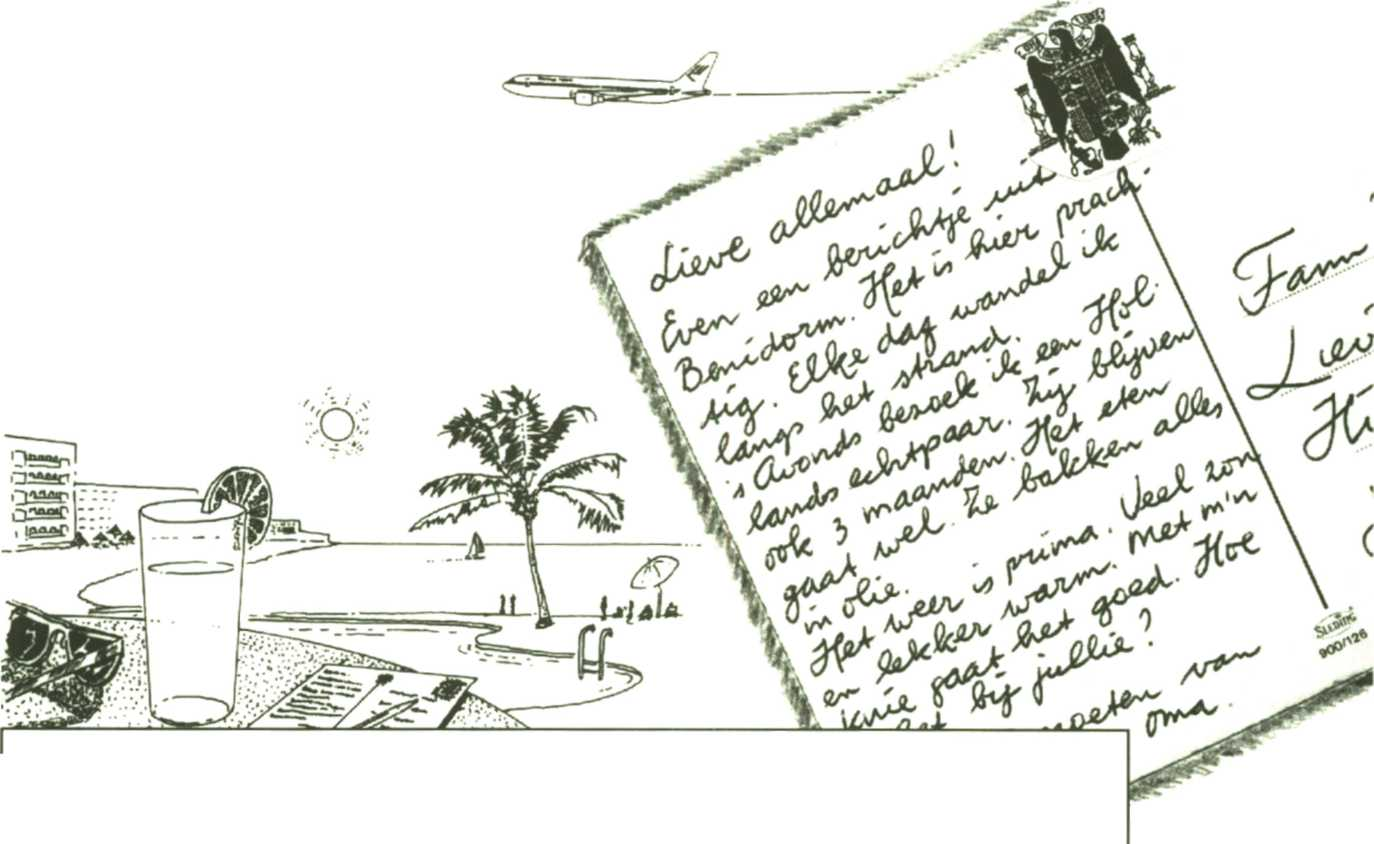 Lieve allemaal!
Even een berichtje uit
Benidorm. Het is hier prach-
tig. Elke dag wandel ik
langs het strand.
's Avonds bezoek ik een Hol-
lands echtpaar. Zij blijven
ook 3 maanden. Het eten
gaat wel. Ze bakken alles
in olie.
Het weer is prima. Veel zon
en lekker warm. Met m'n
knie gaat het goed. Hoe
bij jullie?
van
oma.
Fam
900/126